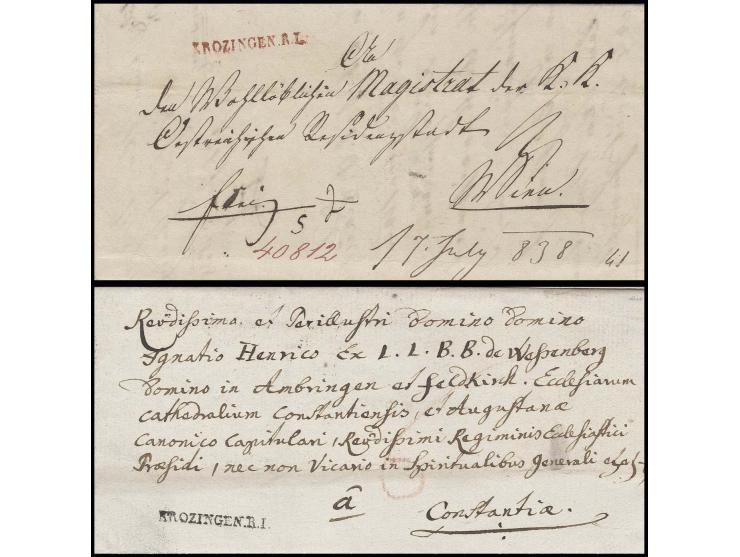 KROZINGEN.R.I.
An
den Wohllöblichen Magistrat der K. K.
Oestreichischen Residenzstadt
Wien.
frei
5
40812
17. July 838
Rev'dissimo et Perillustri Domino Domino
Ignatio Henrico Ex L. L. B. B. de Wessenberg
Domino in Ambringen et Feldkirk. Ecclesiarum
Cathedralium Constantiensis, et Augustanæ
Canonico Capitulari, Rev'dissimi Regiminis Ecclesiastici
Præsidi, nec non Vicario in Spiritualibus generali
â
Constantiæ.
KROZINGEN.R.I.